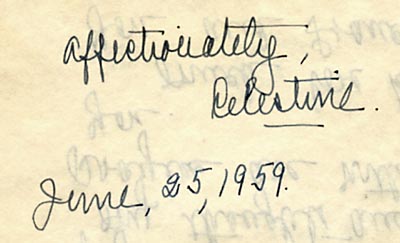 affectionately,
Celestine.
June, 25, 1959.